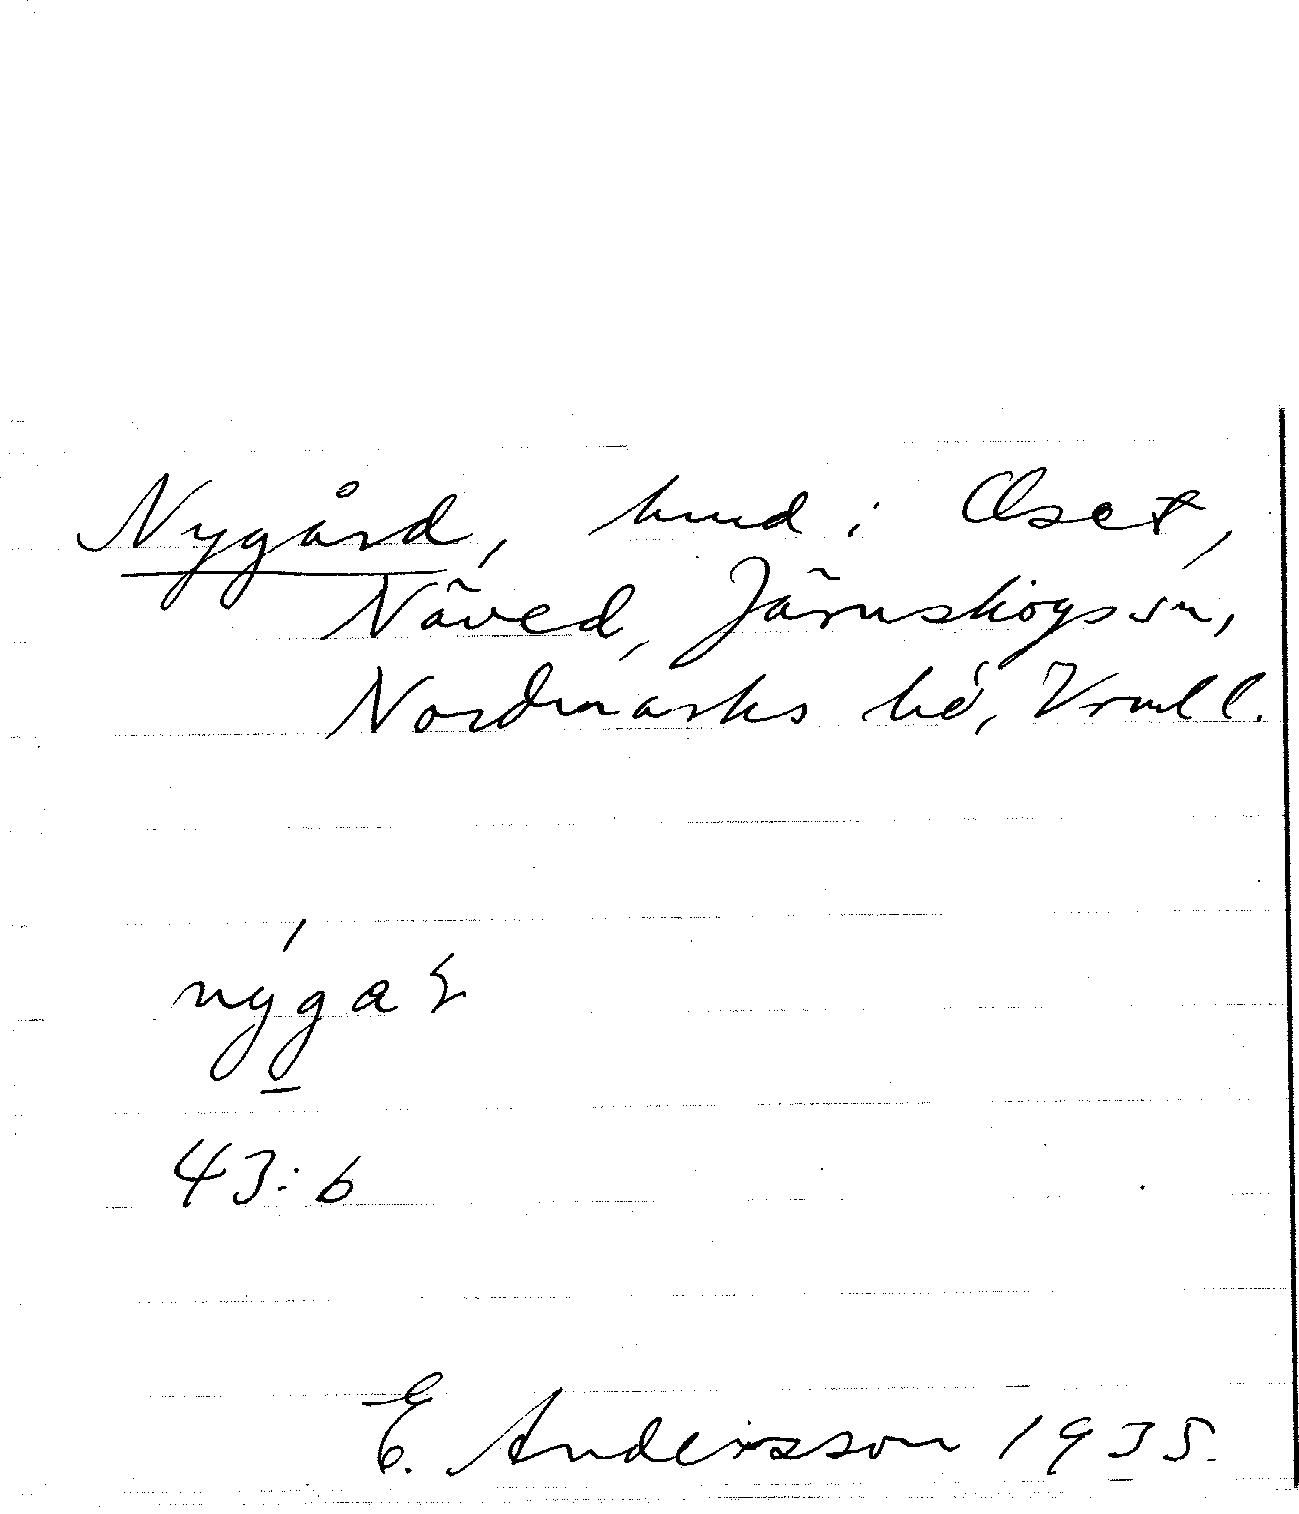 Nygård, hmd i Oset,
Näved, Järnskogs sn,
Nordmarks hd, Vrml l.
nýga
43:6
E. Andersson 1935.